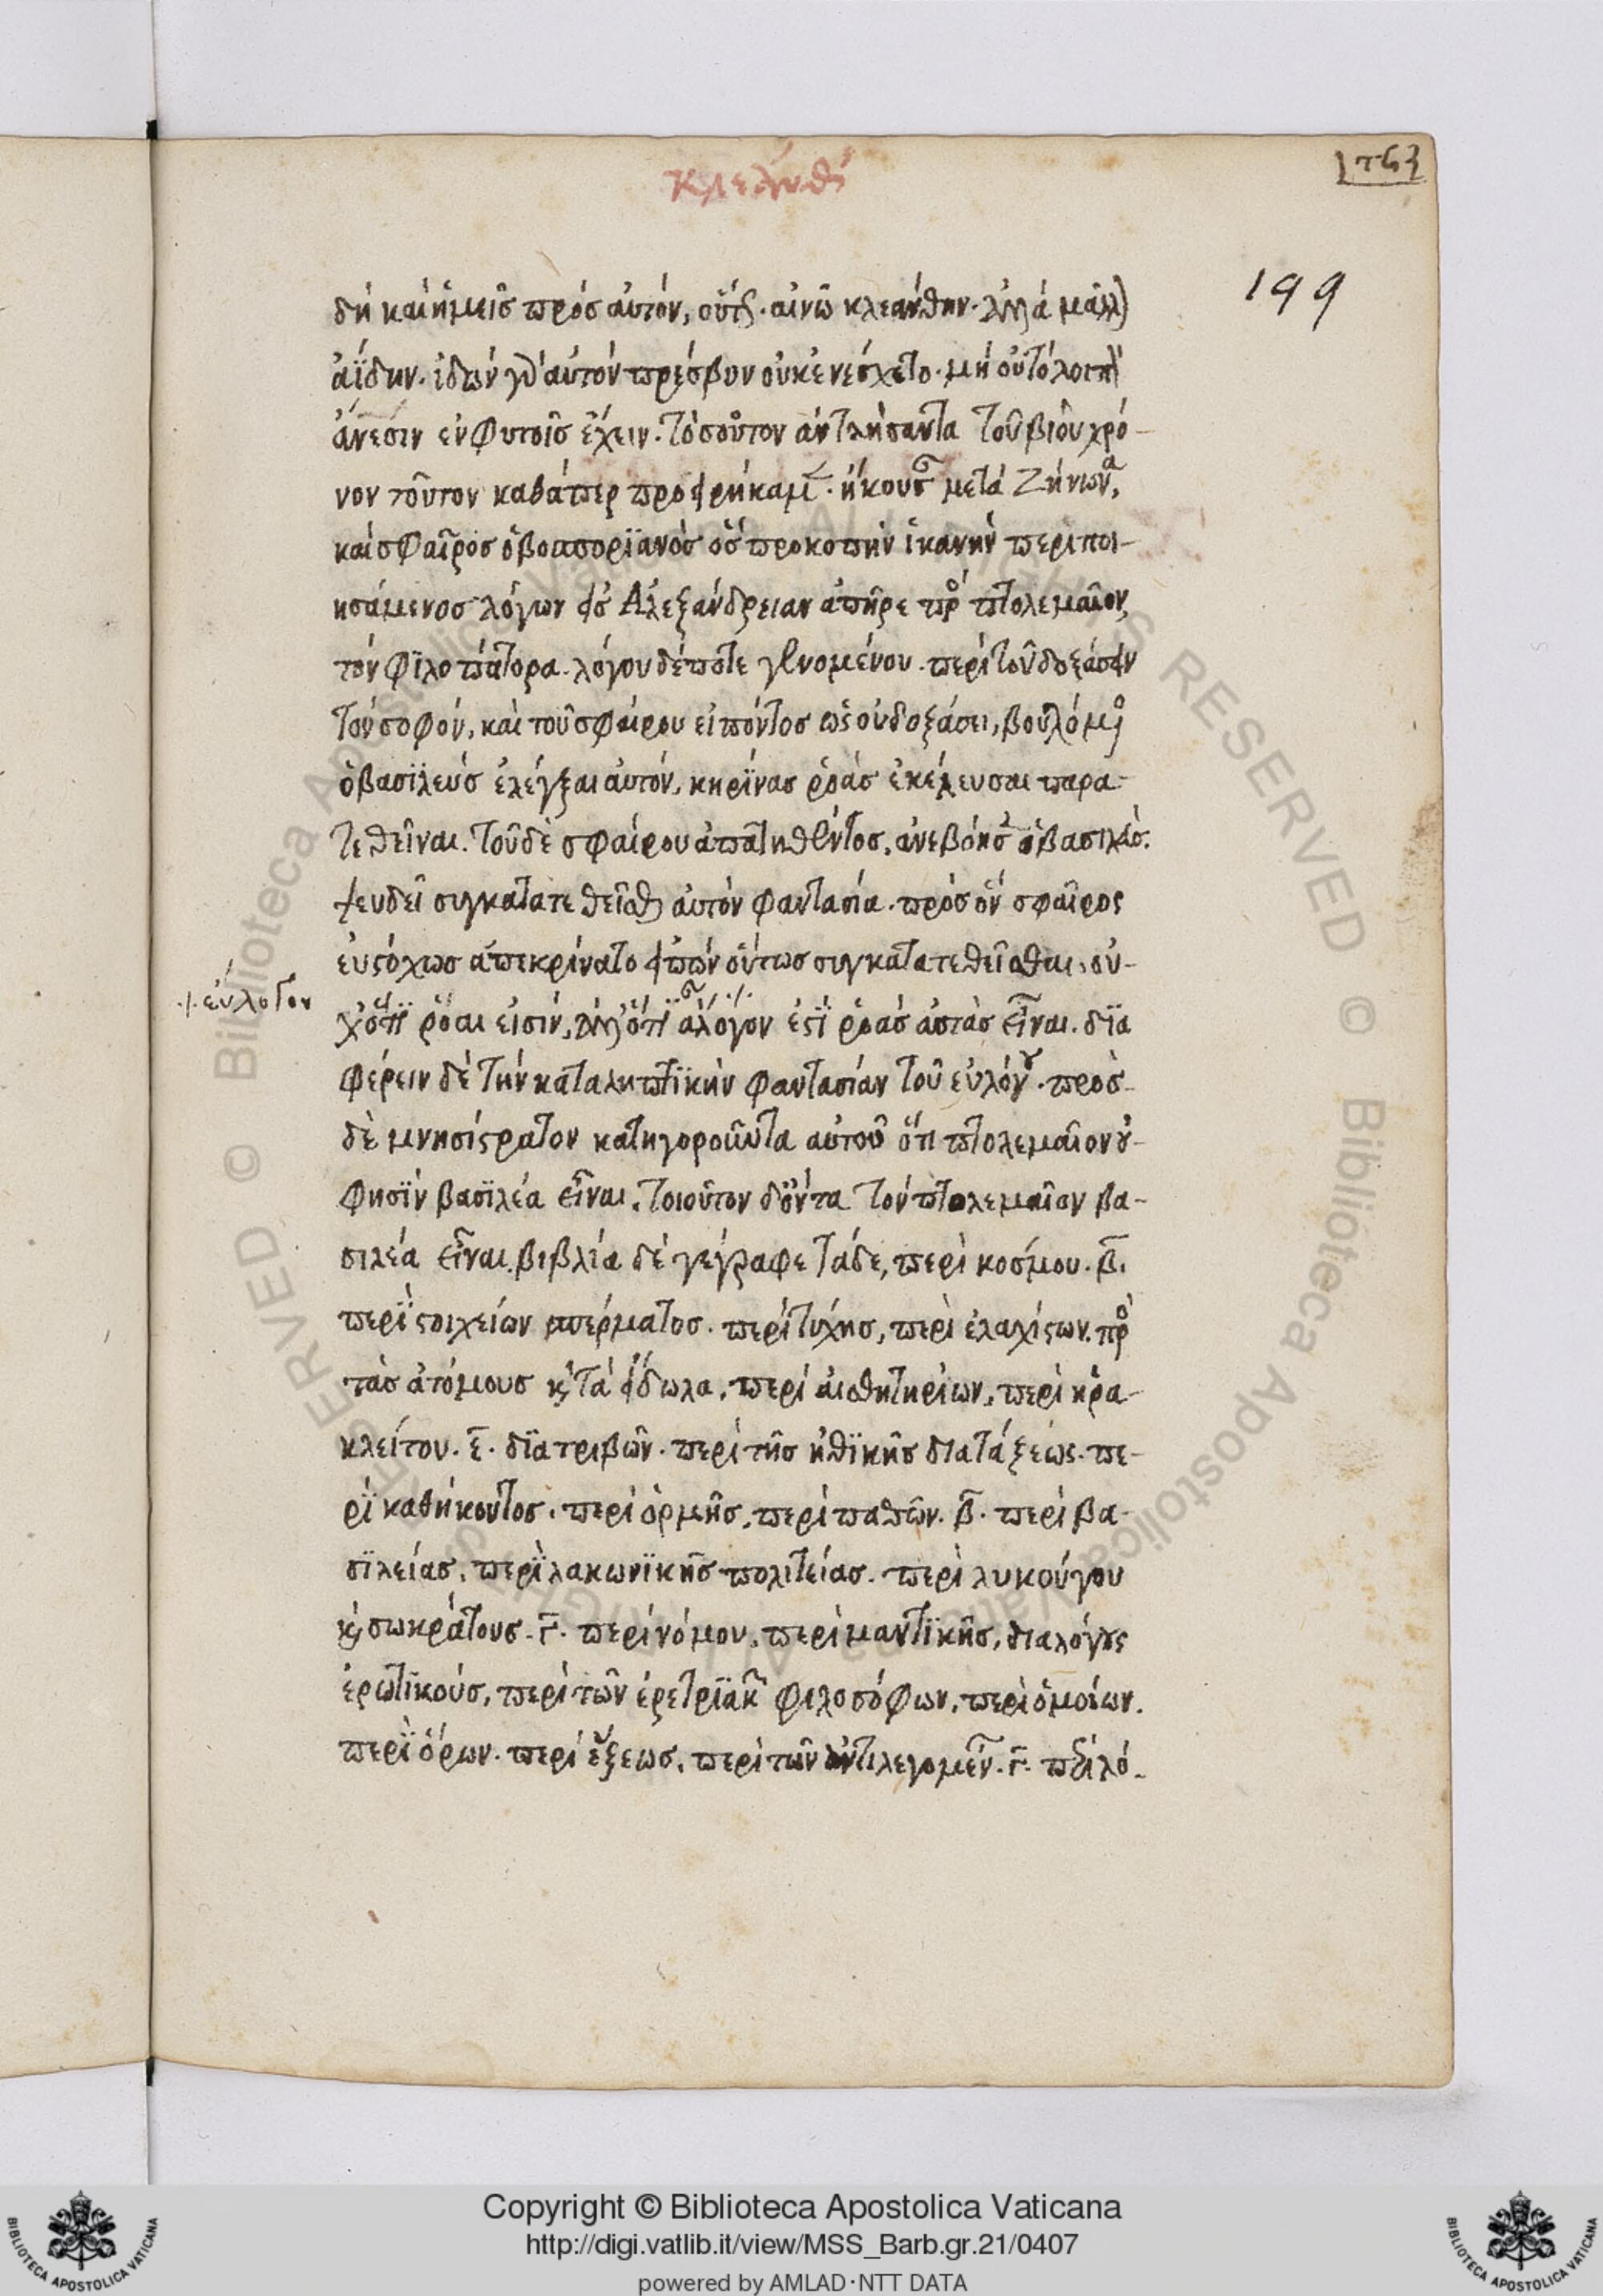 κλεάνθη
199
δή καὶ ἡμεῖς πρὸς αὐτόν, οὕτως. αἰνῶ κλεάνθην. ἀλλὰ μᾶλλον
ἀΐδην. ἰδὼν γὰρ αὐτὸν πρέσβυν οὐκ ἐνέσχετο. μὴ οὐ τὸ λοιπὸν
ἄνεσιν ἐν φυτοῖς ἔχειν. τοσοῦτον ἀντλήσαντα τοῦ βίου χρό-
νον τοῦτον καθάπερ προειρήκαμεν. ἤκουσε μετὰ Ζήνωνα,
καὶ σφαῖρος ὁ βοσποριανὸς ὃς προκοπὴν ἱκανὴν περιποι-
ησάμενος λόγων εἰς Ἀλεξάνδρειαν ἀπῆρε πρὸς πτολεμαῖον,
τὸν φιλοπάτορα. λόγου δέ ποτε γενομένου. περὶ τοῦ δοξάσειν
τὸν σοφόν, καὶ τοῦ σφαίρου εἰπόντος ὡς οὐ δοξάσει, βουλόμενος
ὁ βασιλεὺς ἐλέγξαι αὐτόν, κηρίνας ῥόας ἐκέλευσαι παρα-
τεθεῖναι. τοῦ δὲ σφαίρου ἀπατηθέντος, ἀνεβόησεν ὁ βασιλεὺς.
ψευδεῖ συγκατατεθεῖσθαι αὐτὸν φαντασία. πρὸς ὃν σφαῖρος
εὐστόχως ἀπεκρίνατο εἰπὼν οὕτως συγκατατεθεῖσθαι, οὐ-
·/· εὔλογον
χ ὅτι ῥόαι εἰσίν, ἀλλ' ὅτι ἄλογον ἐστὶ ῥόας αὐτὰς εἶναι. δια
φέρειν δὲ τὴν καταληπτικὴν φαντασίαν τοῦ εὐλόγου. πρὸς-
δὲ μνησίστρατον κατηγοροῦντα αὐτοῦ ὅτι πτολεμαῖον οὐ-
φησὶν βασιλέα εἶναι. τοιοῦτον δ' ὄντα τὸν πτολεμαῖον βα-
σιλέα εἶναι. βιβλία δὲ γέγραφε τάδε, περὶ κοσμου. β.
περὶ στοιχείων σπέρματος. περὶ τύχης, περὶ ἐλαχίστων. πρὸς
τὰς ἀτόμους καὶ τὰ εἴδωλα. περὶ αἰσθητηρίων, περὶ ἡρα-
κλείτου. ε. διατριβῶν. περὶ τῆς ἠθικῆς διατάξεως. πε-
ρὶ καθήκοντος. περὶ ὁρμῆς. περὶ παθῶν. β. περὶ βα-
σιλείας. περὶ λακωνικῆς πολιτείας. περὶ λυκούγου
καὶ σωκράτους. γ. περὶ νόμου. περὶ μαντικῆς, διαλόγους
ἐρωτικούς, περὶ τῶν ἐρετριακῶν φιλοσόφων, περὶ ὁμοίων.
περὶ ὅρων. περὶ ἕξεως. περὶ τῶν ἀντιλεγομένων. γ. περὶ λό-
Copyright © Biblioteca Apostolica Vaticana
http://digi.vatlib.it/view/MSS_Barb.gr.21/0407
powered by AMLAD·NTT DATA